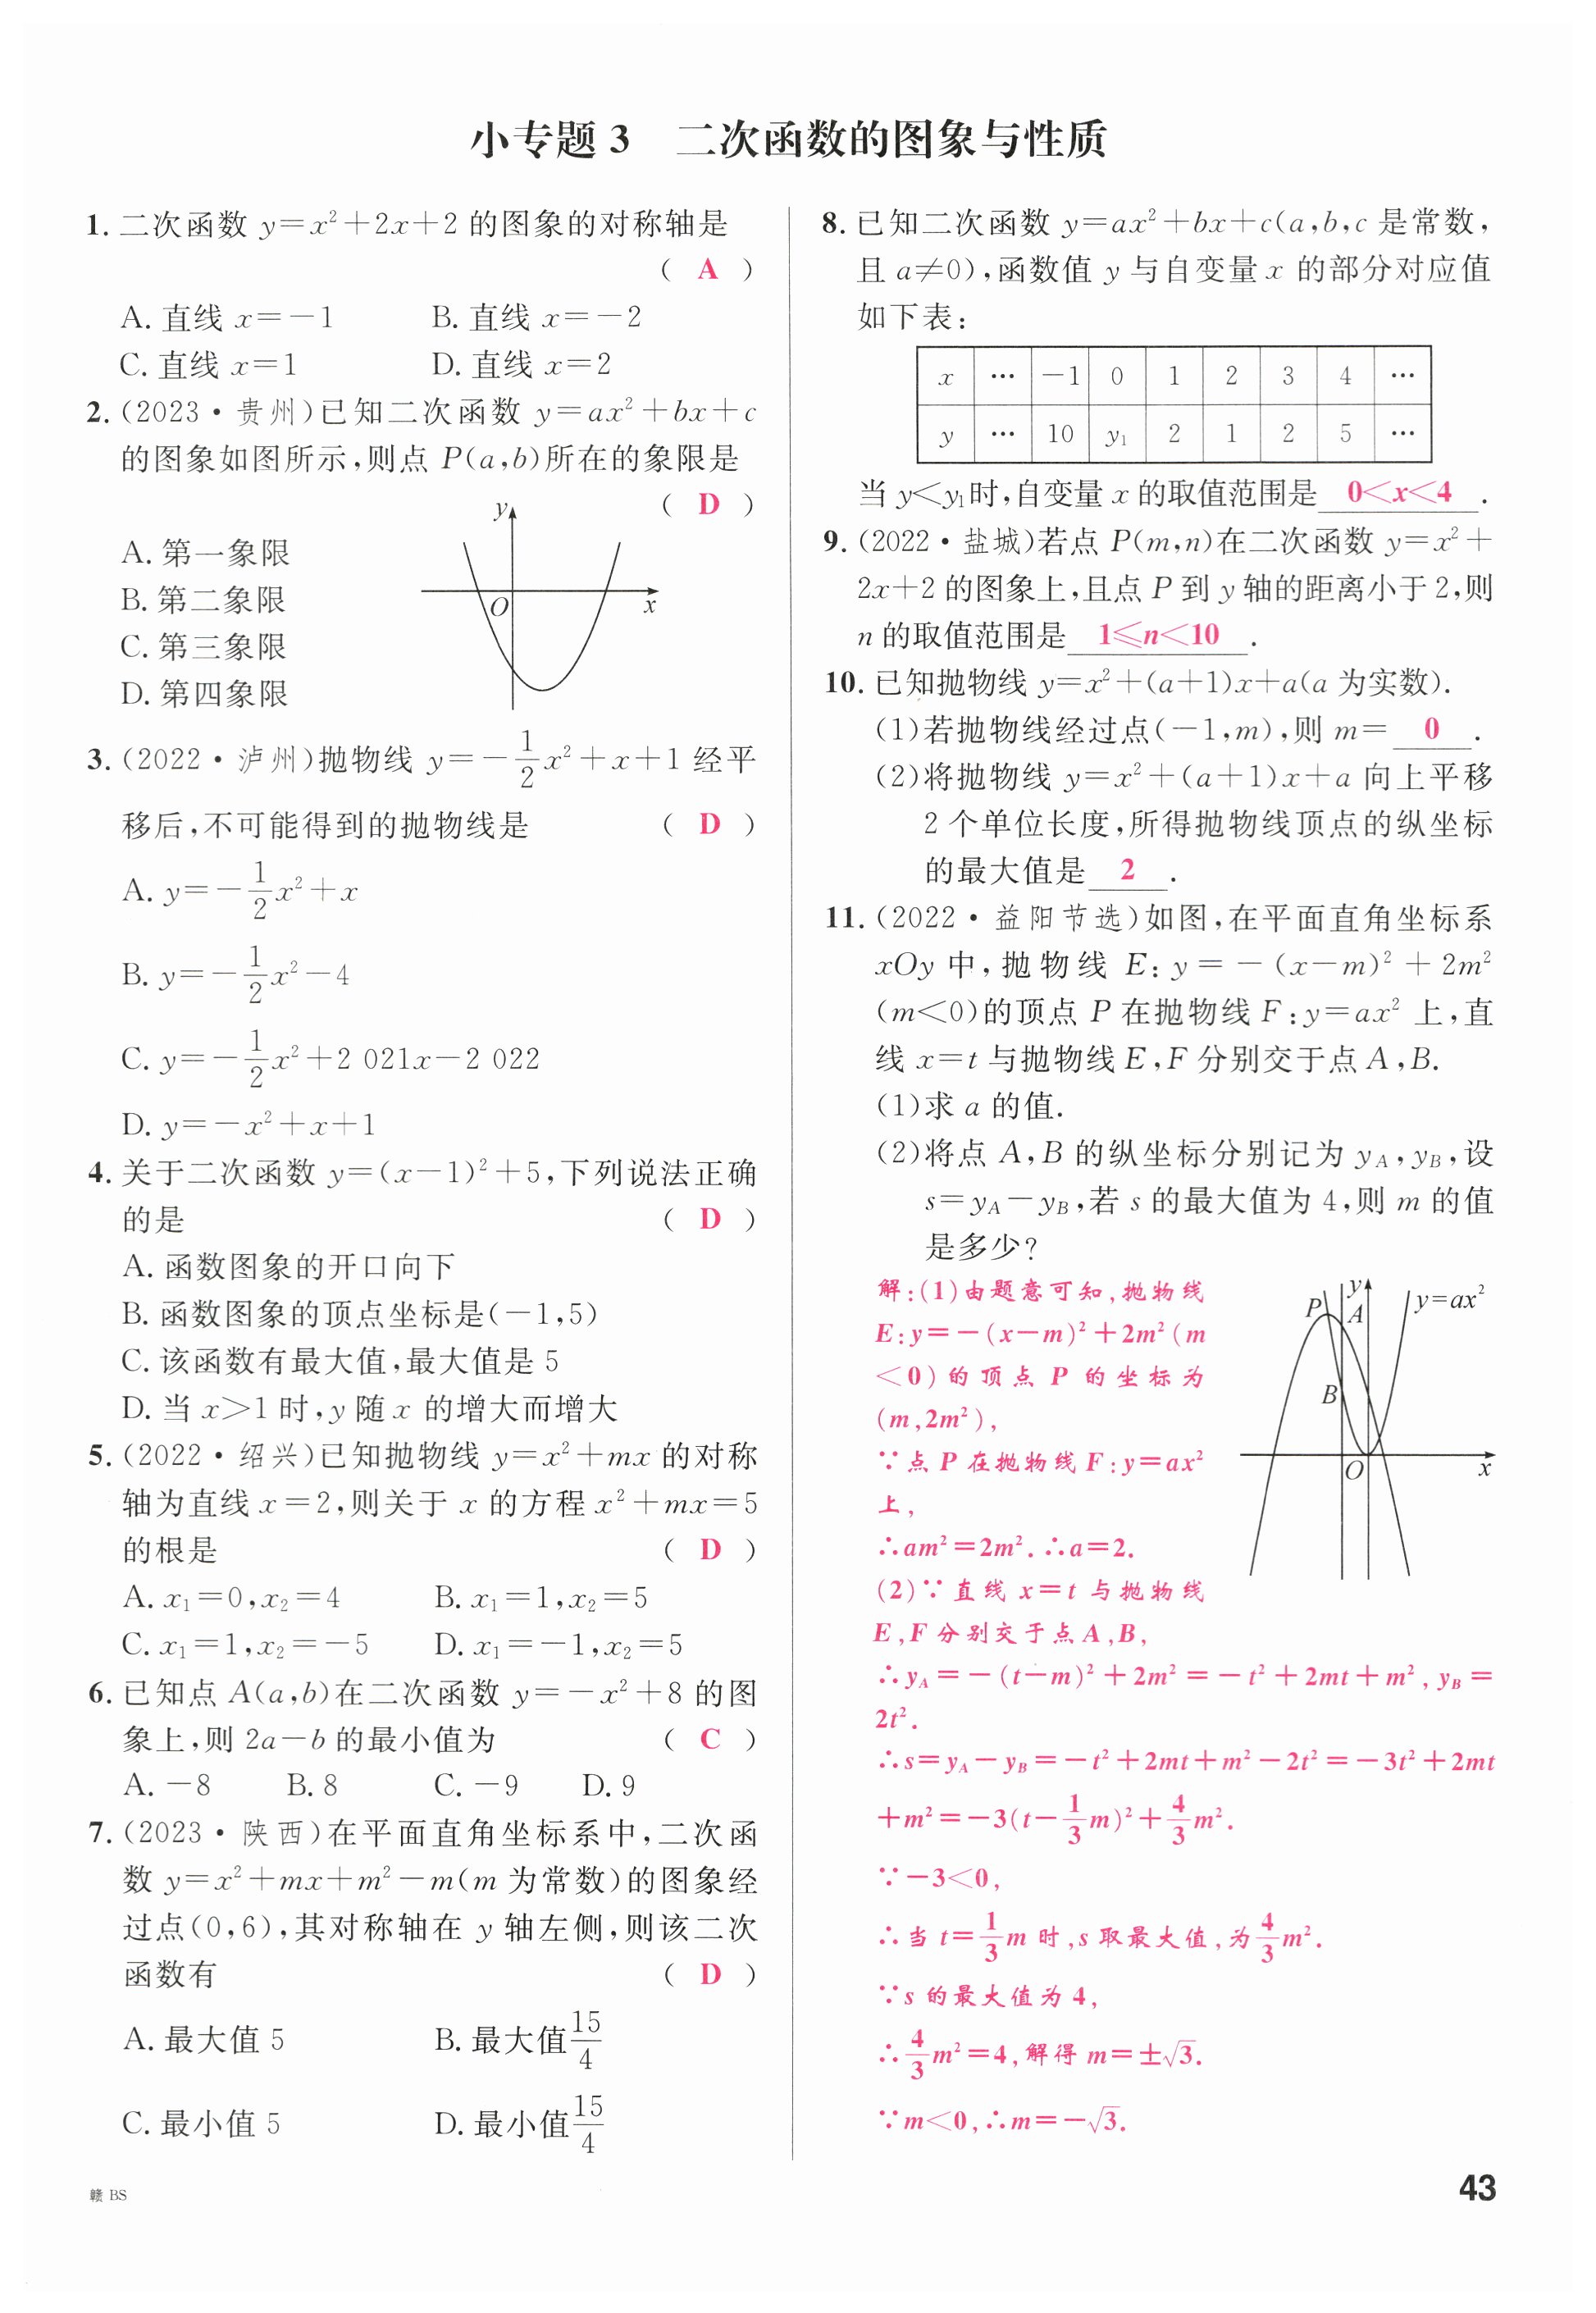 小专题 3　二次函数的图象与性质
1. 二次函数 y=x²+2x+2 的图象的对称轴是
( A )
A. 直线 x=-1　B. 直线 x=-2
C. 直线 x=1　D. 直线 x=2
2. (2023·贵州)已知二次函数 y=ax²+bx+c
的图象如图所示,则点 P(a,b)所在的象限是
( D )
A. 第一象限
B. 第二象限
C. 第三象限
D. 第四象限
y
O
x
3. (2022·泸州)抛物线 y=-1/2x²+x+1 经平
移后,不可能得到的抛物线是 ( D )
A. y=-1/2x²+x
B. y=-1/2x²-4
C. y=-1/2x²+2 021x-2 022
D. y=-x²+x+1
4. 关于二次函数 y=(x-1)²+5,下列说法正确
的是 ( D )
A. 函数图象的开口向下
B. 函数图象的顶点坐标是(-1,5)
C. 该函数有最大值,最大值是 5
D. 当 x>1 时,y 随 x 的增大而增大
5. (2022·绍兴)已知抛物线 y=x²+mx 的对称
轴为直线 x=2,则关于 x 的方程 x²+mx=5
的根是 ( D )
A. x₁=0,x₂=4　B. x₁=1,x₂=5
C. x₁=1,x₂=-5　D. x₁=-1,x₂=5
6. 已知点 A(a,b)在二次函数 y=-x²+8 的图
象上,则 2a-b 的最小值为 ( C )
A. -8　B. 8　C. -9　D. 9
7. (2023·陕西)在平面直角坐标系中,二次函
数 y=x²+mx+m²-m(m 为常数)的图象经
过点(0,6),其对称轴在 y 轴左侧,则该二次
函数有 ( D )
A. 最大值 5　B. 最大值15/4
C. 最小值 5　D. 最小值15/4
赣 BS
8. 已知二次函数 y=ax²+bx+c(a,b,c 是常数,
且 a≠0),函数值 y 与自变量 x 的部分对应值
如下表:
x … -1 0 1 2 3 4 …
y … 10 y₁ 2 1 2 5 …
当 y<y₁时,自变量 x 的取值范围是 0<x<4 .
9. (2022·盐城)若点 P(m,n)在二次函数 y=x²+
2x+2 的图象上,且点 P 到 y 轴的距离小于 2,则
n 的取值范围是 1≤n<10 .
10. 已知抛物线 y=x²+(a+1)x+a(a 为实数).
(1)若抛物线经过点(-1,m),则 m= 0 .
(2)将抛物线 y=x²+(a+1)x+a 向上平移
2 个单位长度,所得抛物线顶点的纵坐标
的最大值是 2 .
11. (2022·益阳节选)如图,在平面直角坐标系
xOy 中,抛物线 E: y=-(x-m)²+2m²
(m<0)的顶点 P 在抛物线 F:y=ax² 上,直
线 x=t 与抛物线 E,F 分别交于点 A,B.
(1)求 a 的值.
(2)将点 A,B 的纵坐标分别记为 y_A,y_B,设
s=y_A-y_B,若 s 的最大值为 4,则 m 的值
是多少?
解:(1)由题意可知,抛物线
E:y=-(x-m)²+2m²(m
<0)的顶点 P 的坐标为
(m,2m²),
∵点 P 在抛物线 F:y=ax²
上,
∴am²=2m². ∴a=2.
(2)∵直线 x=t 与抛物线
E,F 分别交于点 A,B,
P y A y=ax²
B
O x
∴y_A=-(t-m)²+2m²=-t²+2mt+m²,y_B=
2t².
∴s=y_A-y_B=-t²+2mt+m²-2t²=-3t²+2mt
+m²=-3(t-1/3m)²+4/3m².
∵-3<0,
∴当 t=1/3m 时,s 取最大值,为4/3m².
∵s 的最大值为 4,
∴4/3m²=4,解得 m=±√3.
∵m<0,∴m=-√3.
43